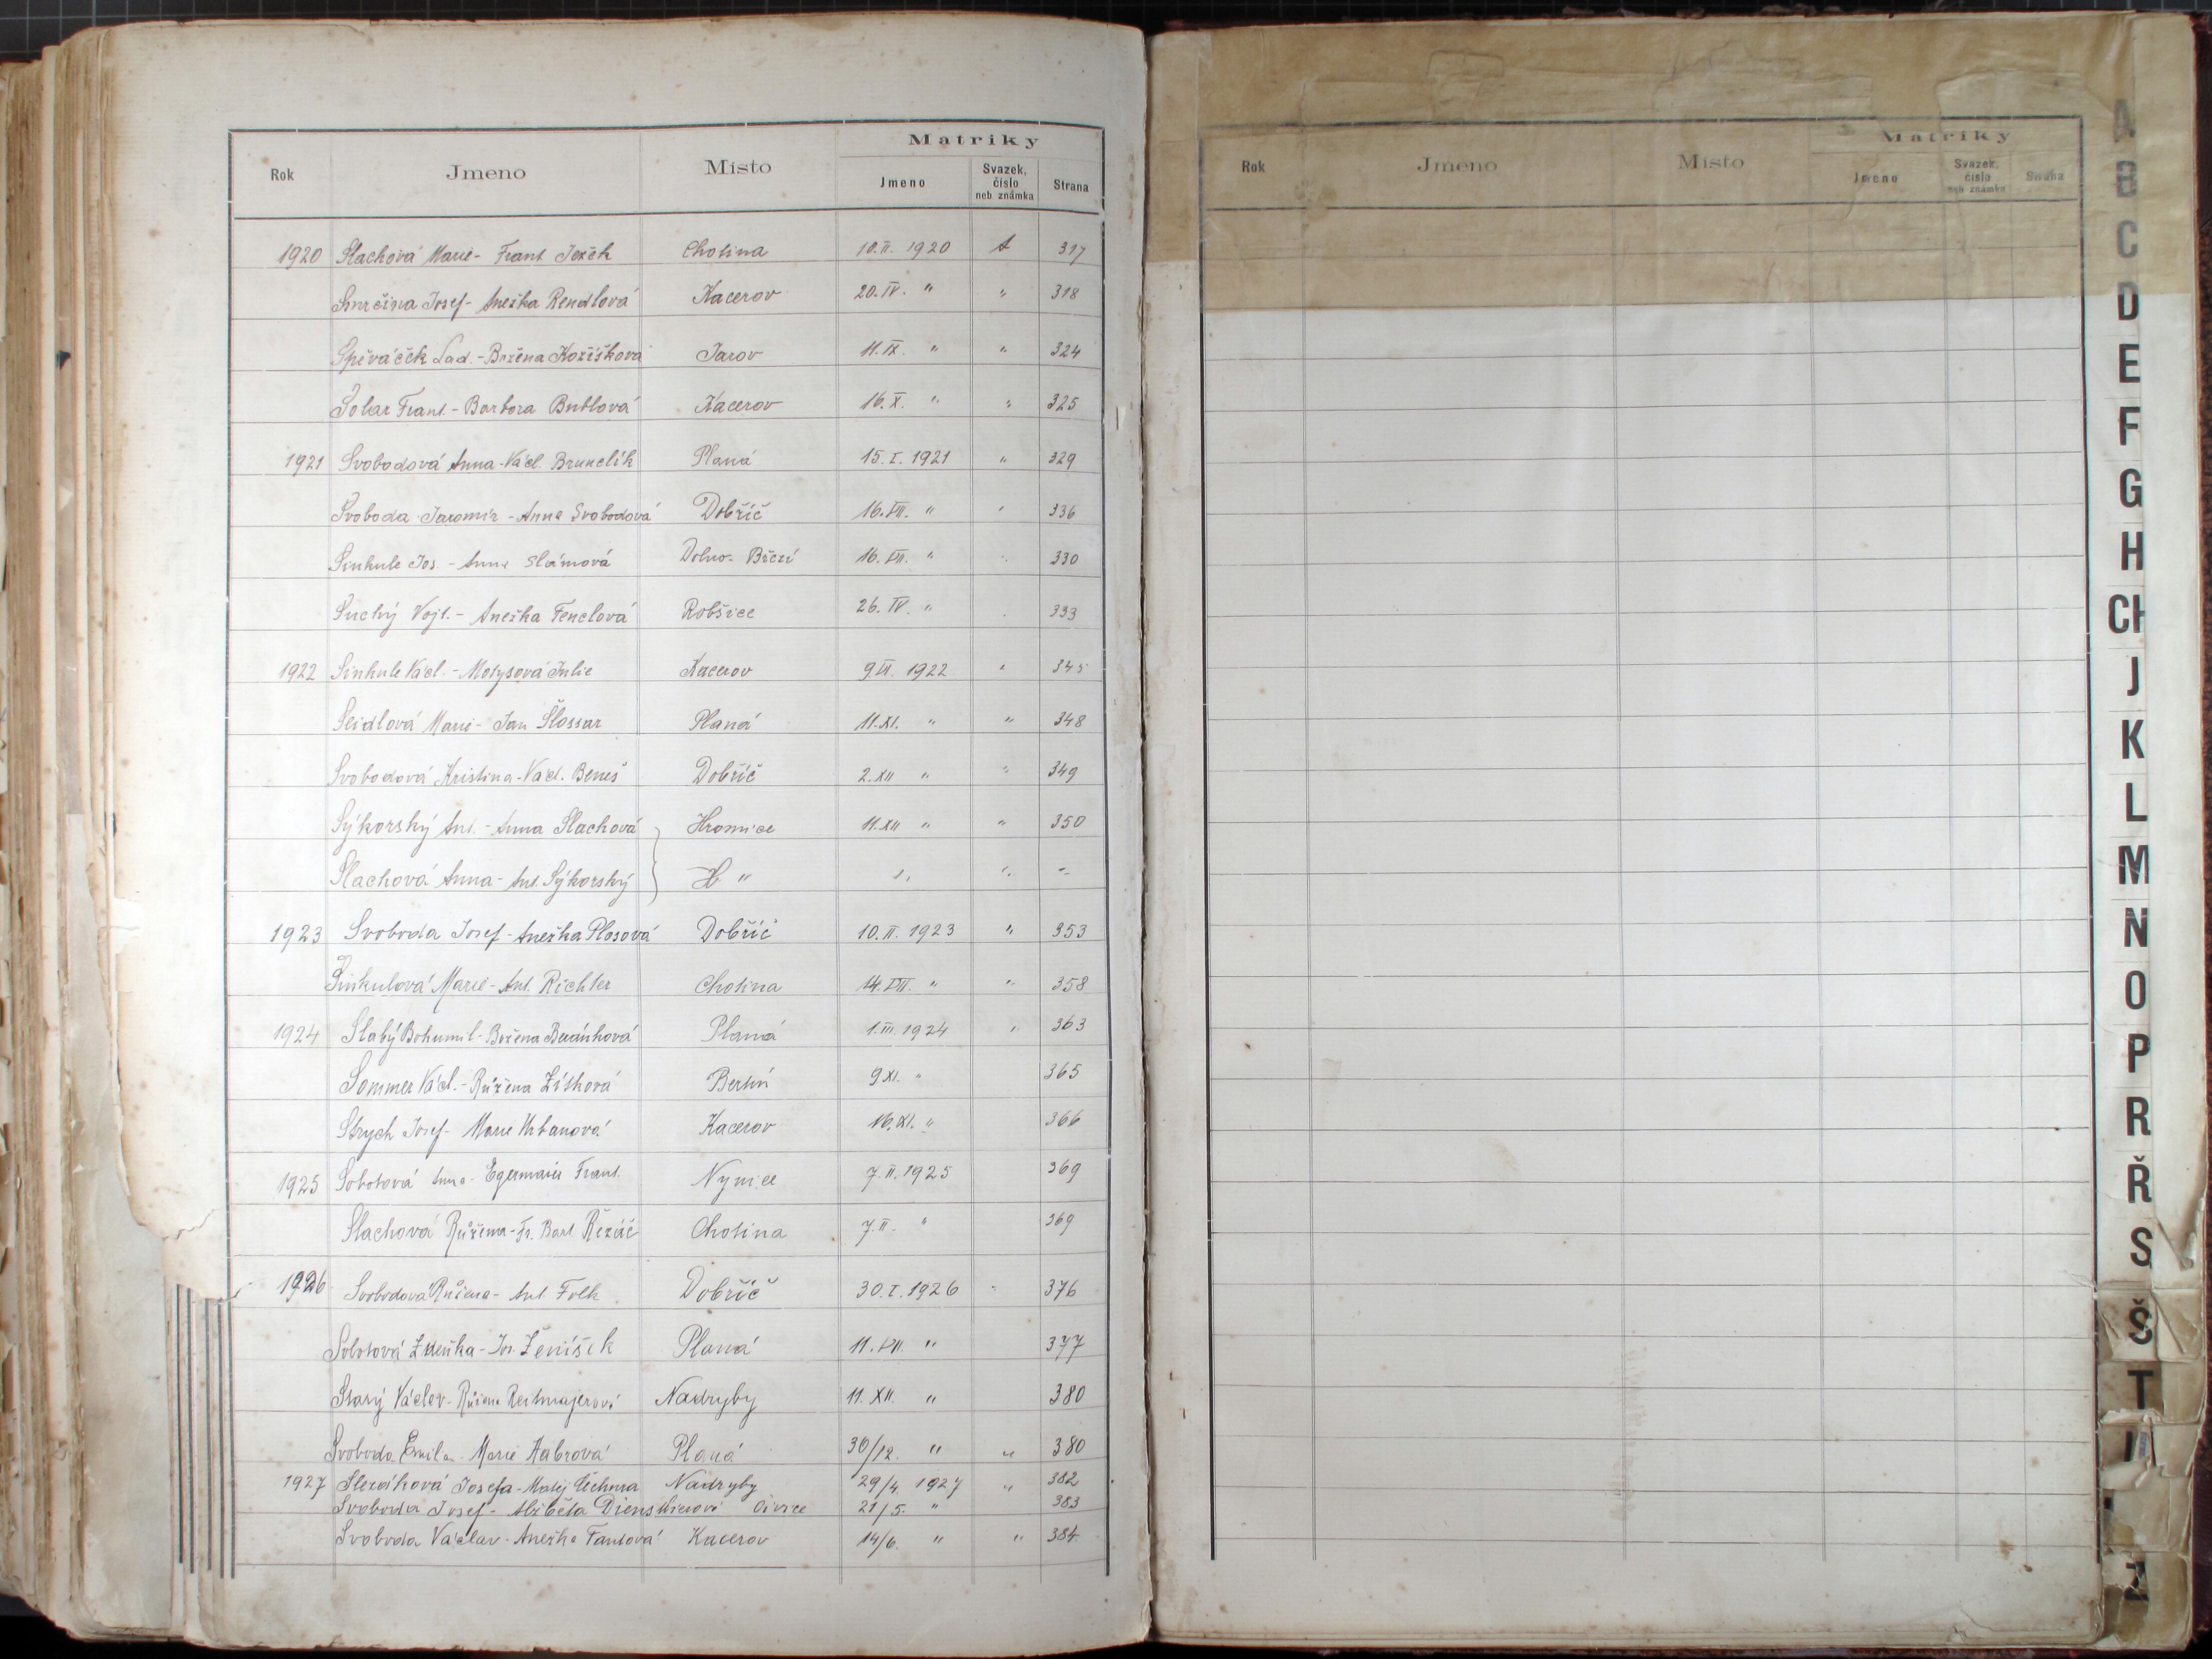 Rok Jmeno Místo Matriky
Jmeno Svazek, číslo neb známka Strana
1920 Slachová Marie - Frant. Ježek Chotina 10.II. 1920 A 317
Smrčina Josef - Anežka Rendlová Kacerov 20.IV. " " 318
Spěváček Lad. - Božena Kožíšková Jarov 11.IX. " " 324
Solar Frant. - Barbora Bublová Kacerov 16.X. " " 325
1921 Svobodová Anna - Václ. Brunclík Planá 15.I. 1921 " 329
Svoboda Jaromír - Anna Svobodová Dobříč 16.VII. " " 336
Sinkule Jos. - Anna Slámová Dolno-Březí 16. " 330
Suchý Vojt. - Anežka Fenclová Robšice 26.IV. " 333
1922 Sinkule Václ. - Motysová Julie Kacerov 1922 " 345
Seidlová Marie - Jan Šlossar Planá 11.XI. " " 348
Svobodová Kristina - Václ. Beneš Dobříč 2.XII " " 349
Sýkorský Ant. - Anna Slachová Hromice 11.XII " " 350
Slachová Anna - Ant. Sýkorský H " " " "
1923 Svoboda Josef - Anežka Plosová Dobříč 10.II. 1923 " 353
Šinkulová Marie - Ant. Richter Chotina 14. " " 358
1924 Slabý Bohumil - Božena Beránková Planá 1.III. 1924 " 363
Sommer Václ. - Růžena Zíthová 9.XI. " 365
Strych Josef - Marie Urbanová Kacerov 16.XI. " 366
1925 Sobotová Anna - Egermaier Frant. Nynice 7.II. 1925 369
Slachová Růžena - Fr. Bart. Řezáč Chotina 7.II. " 369
1926 Svobodová Růžena - Ant. Folk Dobříč 30.I. 1926 " 376
Sobotová Zdeňka - Jos. Ženíšek Planá 11. " 377
Starý Václav - Růžena Reitmajerová Nadryby 11.XII. " 380
Svoboda Emil - Marie Habrová Planá 30/12. " " 380
1927 Slezáková Josefa - Matěj Čechura Nadryby 29/4. 1927 " 382
Svoboda Josef - Alžběta Dienstbierová Čivice 21/5. " 383
Svoboda Václav - Anežka Fantová Kacerov 14/6. " " 384
Rok Jmeno Místo Matriky
Jmeno Svazek, číslo neb známka Strana
A
B
C
D
E
F
G
H
CH
J
K
L
M
N
O
P
R
Ř
S
Š
T
Z